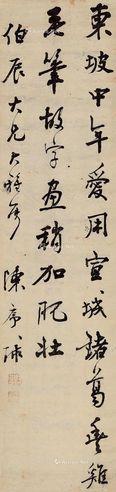 東坡中年愛用宣城諸葛豐雞
毛筆故字畫稍加肥壯
伯辰大兄大雅屬 陳彥